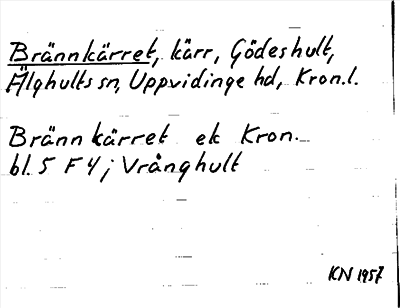 Brännkärret, kärr, Gödeshult,
Älghults sn, Uppvidinge hd, Kron.l.
Brännkärret ek Kron.
bl. 5 F 4; Vrånghult
KN 1957